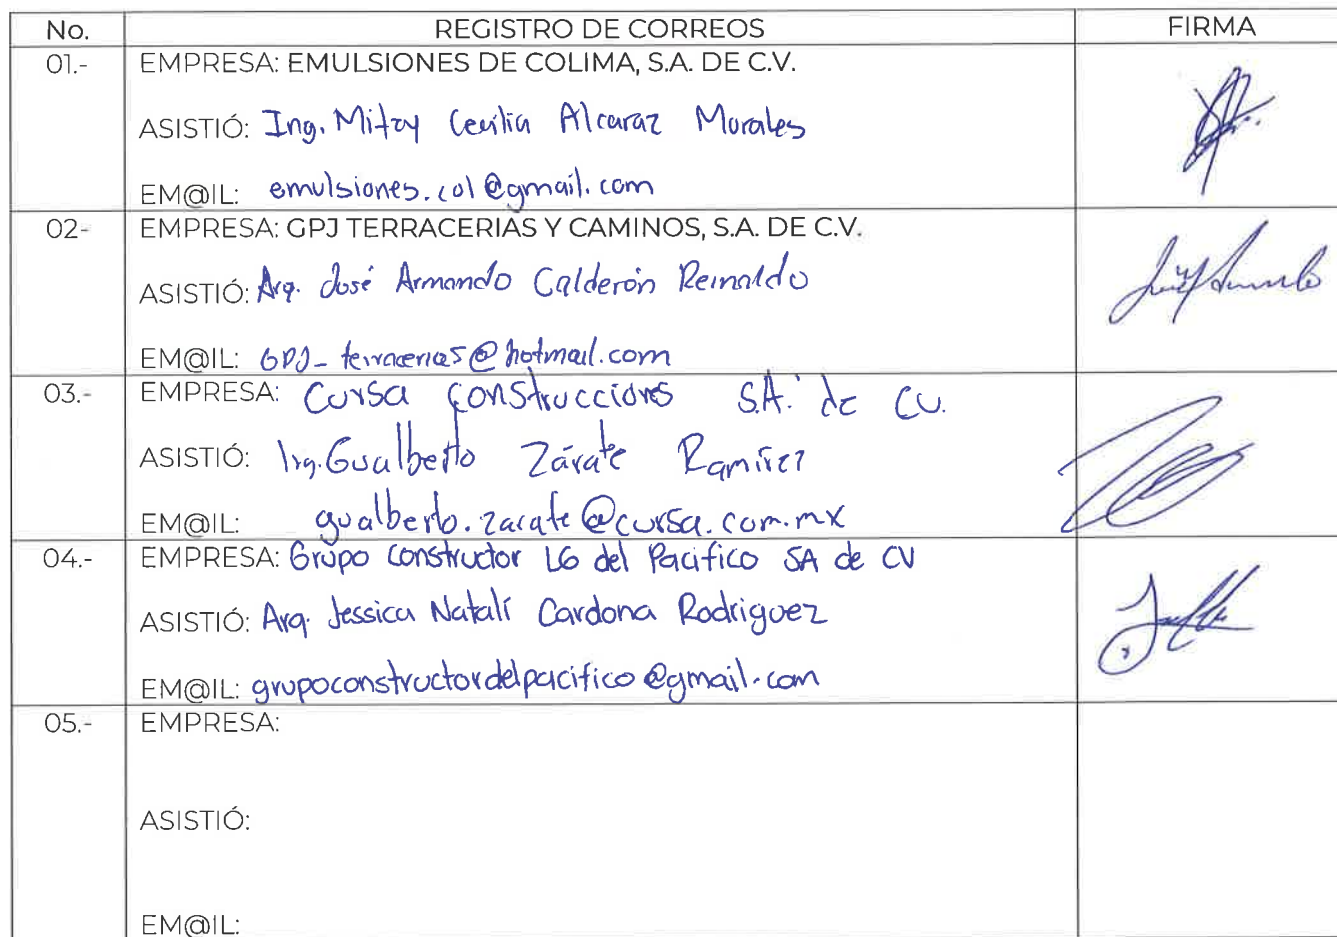 No. REGISTRO DE CORREOS FIRMA
01.- EMPRESA: EMULSIONES DE COLIMA, S.A. DE C.V.
ASISTIÓ: Ing. Mitzy Cecilia Alcaraz Morales
EM@IL: emulsiones.col@gmail.com
02- EMPRESA: GPJ TERRACERIAS Y CAMINOS, S.A. DE C.V.
ASISTIÓ: Arq. José Armando Calderón Reinaldo
EM@IL: GPJ_terracerias@hotmail.com
03.- EMPRESA: Cursa Construcciones S.A. de CV.
ASISTIÓ: Ing. Gualberto Zárate Ramírez
EM@IL: gualberto.zarate@cursa.com.mx
04.- EMPRESA: Grupo Constructor LG del Pacifico SA de CV
ASISTIÓ: Arq. Jessica Natalí Cardona Rodriguez
EM@IL: grupoconstructordelpacifico@gmail.com
05.- EMPRESA:
ASISTIÓ:
EM@IL: